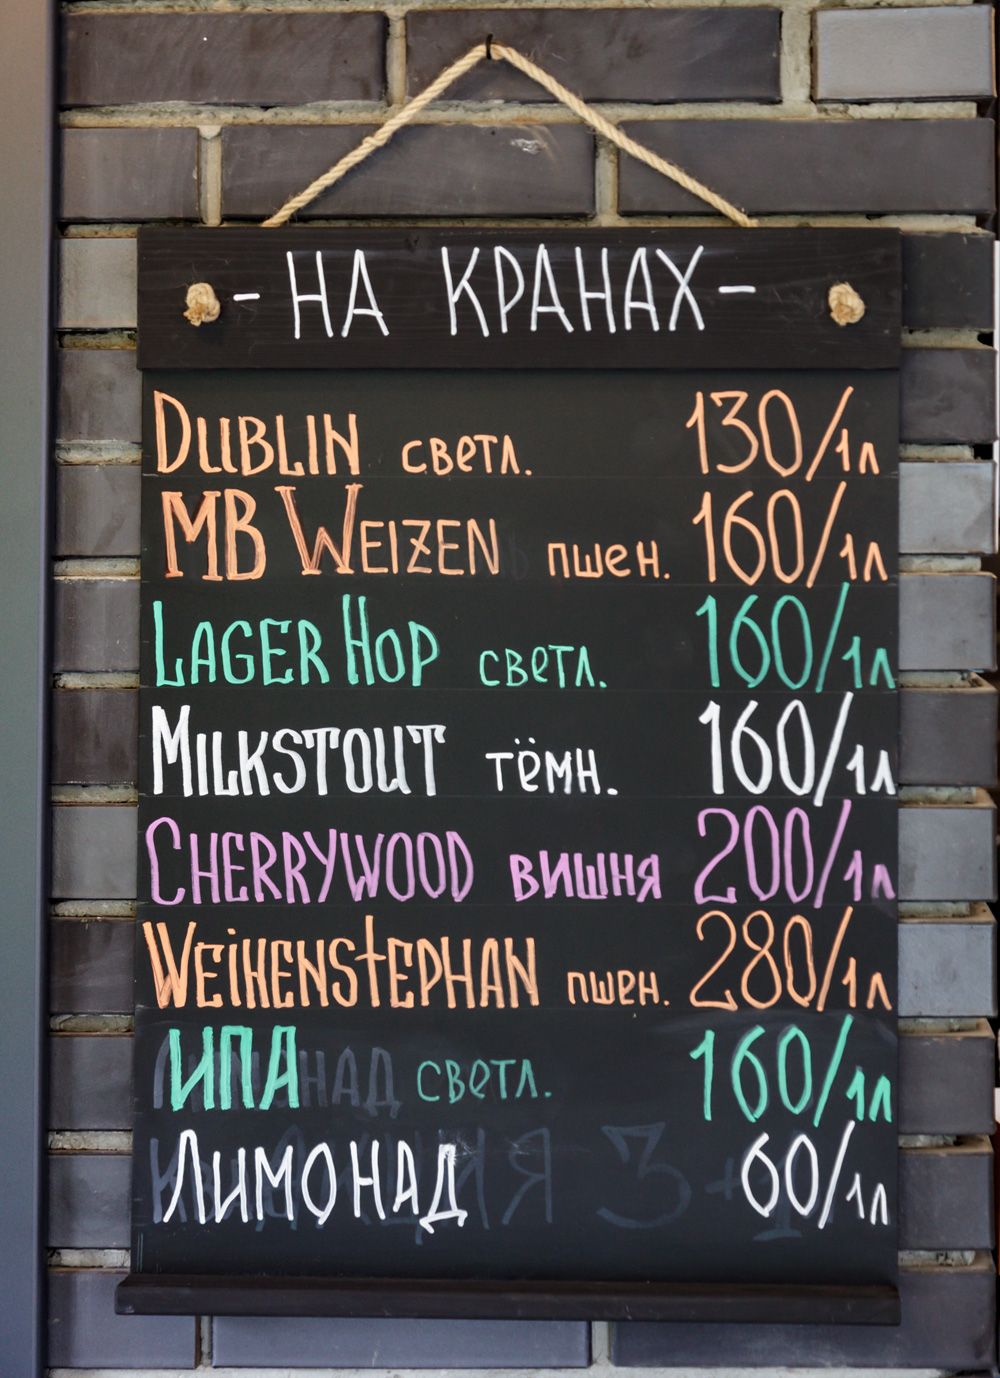 - НА КРАНАХ -
DUBLIN светл. 130/1л
MB WEIZEN пшен. 160/1л
LAGER HOP светл. 160/1л
MILKSTOUT тёмн. 160/1л
CHERRYWOOD вишня 200/1л
WEIHENSTEPHAN пшен. 280/1л
ИПА светл. 160/1л
ЛИМОНАД 60/1л